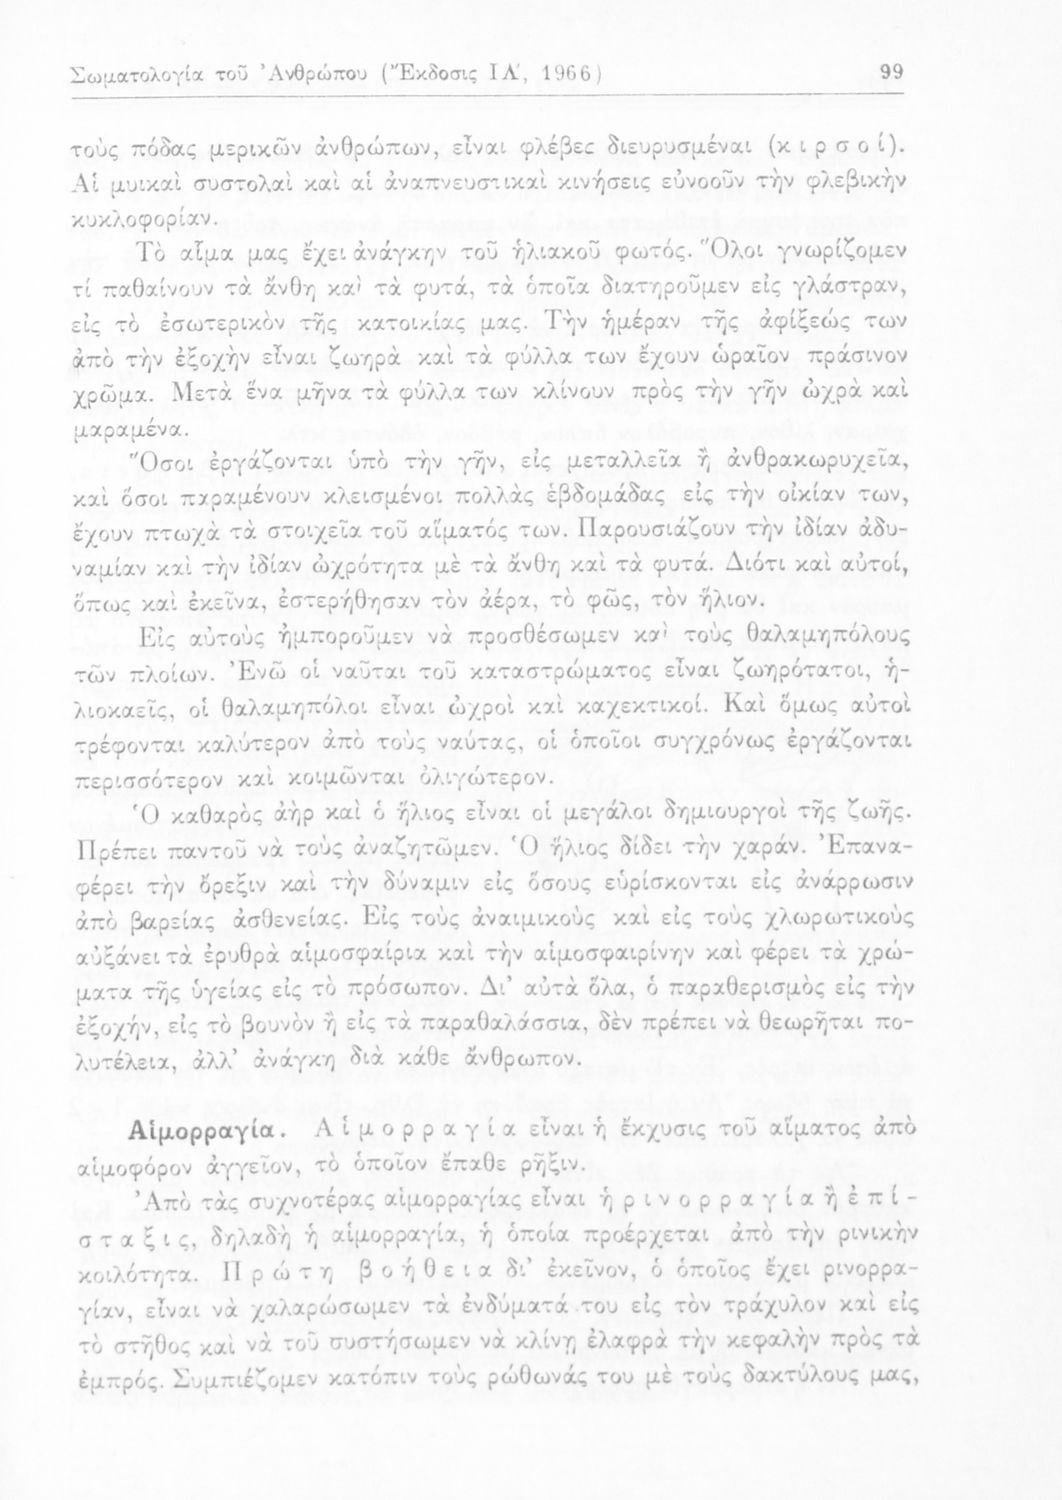 Σωματολογία τοῦ Ἀνθρώπου (Ἔκδοσις ΙΑ΄, 1966) 99
τοὺς πόδας μερικῶν ἀνθρώπων, εἶναι φλέβες διευρυσμέναι (κ ι ρ σ ο ί).
Αἱ μυικαὶ συστολαὶ καὶ αἱ ἀναπνευστικαὶ κινήσεις εὐνοοῦν τὴν φλεβικὴν
κυκλοφορίαν.
Τὸ αἷμα μας ἔχει ἀνάγκην τοῦ ἡλιακοῦ φωτός. Ὅλοι γνωρίζομεν
τί παθαίνουν τὰ ἄνθη καὶ τὰ φυτά, τὰ ὁποῖα διατηροῦμεν εἰς γλάστραν,
εἰς τὸ ἐσωτερικὸν τῆς κατοικίας μας. Τὴν ἡμέραν τῆς ἀφίξεώς των
ἀπὸ τὴν ἐξοχὴν εἶναι ζωηρὰ καὶ τὰ φύλλα των ἔχουν ὡραῖον πράσινον
χρῶμα. Μετὰ ἕνα μῆνα τὰ φύλλα των κλίνουν πρὸς τὴν γῆν ὠχρὰ καὶ
μαραμένα.
Ὅσοι ἐργάζονται ὑπὸ τὴν γῆν, εἰς μεταλλεῖα ἢ ἀνθρακωρυχεῖα,
καὶ ὅσοι παραμένουν κλεισμένοι πολλὰς ἑβδομάδας εἰς τὴν οἰκίαν των,
ἔχουν πτωχὰ τὰ στοιχεῖα τοῦ αἵματός των. Παρουσιάζουν τὴν ἰδίαν ἀδυ-
ναμίαν καὶ τὴν ἰδίαν ὠχρότητα μὲ τὰ ἄνθη καὶ τὰ φυτά. Διότι καὶ αὐτοί,
ὅπως καὶ ἐκεῖνα, ἐστερήθησαν τὸν ἀέρα, τὸ φῶς, τὸν ἥλιον.
Εἰς αὐτοὺς ἠμποροῦμεν νὰ προσθέσωμεν καὶ τοὺς θαλαμηπόλους
τῶν πλοίων. Ἐνῶ οἱ ναῦται τοῦ καταστρώματος εἶναι ζωηρότατοι, ἡ-
λιοκαεῖς, οἱ θαλαμηπόλοι εἶναι ὠχροὶ καὶ καχεκτικοί. Καὶ ὅμως αὐτοὶ
τρέφονται καλύτερον ἀπὸ τοὺς ναύτας, οἱ ὁποῖοι συγχρόνως ἐργάζονται
περισσότερον καὶ κοιμῶνται ὀλιγώτερον.
Ὁ καθαρὸς ἀὴρ καὶ ὁ ἥλιος εἶναι οἱ μεγάλοι δημιουργοὶ τῆς ζωῆς.
Πρέπει παντοῦ νὰ τοὺς ἀναζητῶμεν. Ὁ ἥλιος δίδει τὴν χαράν. Ἐπανα-
φέρει τὴν ὄρεξιν καὶ τὴν δύναμιν εἰς ὅσους εὑρίσκονται εἰς ἀνάρρωσιν
ἀπὸ βαρείας ἀσθενείας. Εἰς τοὺς ἀναιμικοὺς καὶ εἰς τοὺς χλωρωτικοὺς
αὐξάνει τὰ ἐρυθρὰ αἱμοσφαίρια καὶ τὴν αἱμοσφαιρίνην καὶ φέρει τὰ χρώ-
ματα τῆς ὑγείας εἰς τὸ πρόσωπον. Δι’ αὐτὰ ὅλα, ὁ παραθερισμὸς εἰς τὴν
ἐξοχήν, εἰς τὸ βουνὸν ἢ εἰς τὰ παραθαλάσσια, δὲν πρέπει νὰ θεωρῆται πο-
λυτέλεια, ἀλλ’ ἀνάγκη διὰ κάθε ἄνθρωπον.
Αἱμορραγία. Α ἱ μ ο ρ ρ α γ ί α εἶναι ἡ ἔκχυσις τοῦ αἵματος ἀπὸ
αἱμοφόρον ἀγγεῖον, τὸ ὁποῖον ἔπαθε ρῆξιν.
Ἀπὸ τὰς συχνοτέρας αἱμορραγίας εἶναι ἡ ρ ι ν ο ρ ρ α γ ί α ἢ ἐ π ί -
σ τ α ξ ι ς, δηλαδὴ ἡ αἱμορραγία, ἡ ὁποία προέρχεται ἀπὸ τὴν ρινικὴν
κοιλότητα. Π ρ ώ τ η β ο ή θ ε ι α δι’ ἐκεῖνον, ὁ ὁποῖος ἔχει ρινορρα-
γίαν, εἶναι νὰ χαλαρώσωμεν τὰ ἐνδύματά του εἰς τὸν τράχυλον καὶ εἰς
τὸ στῆθος καὶ νὰ τοῦ συστήσωμεν νὰ κλίνῃ ἐλαφρὰ τὴν κεφαλὴν πρὸς τὰ
ἐμπρός. Συμπιέζομεν κατόπιν τοὺς ρώθωνάς του μὲ τοὺς δακτύλους μας,